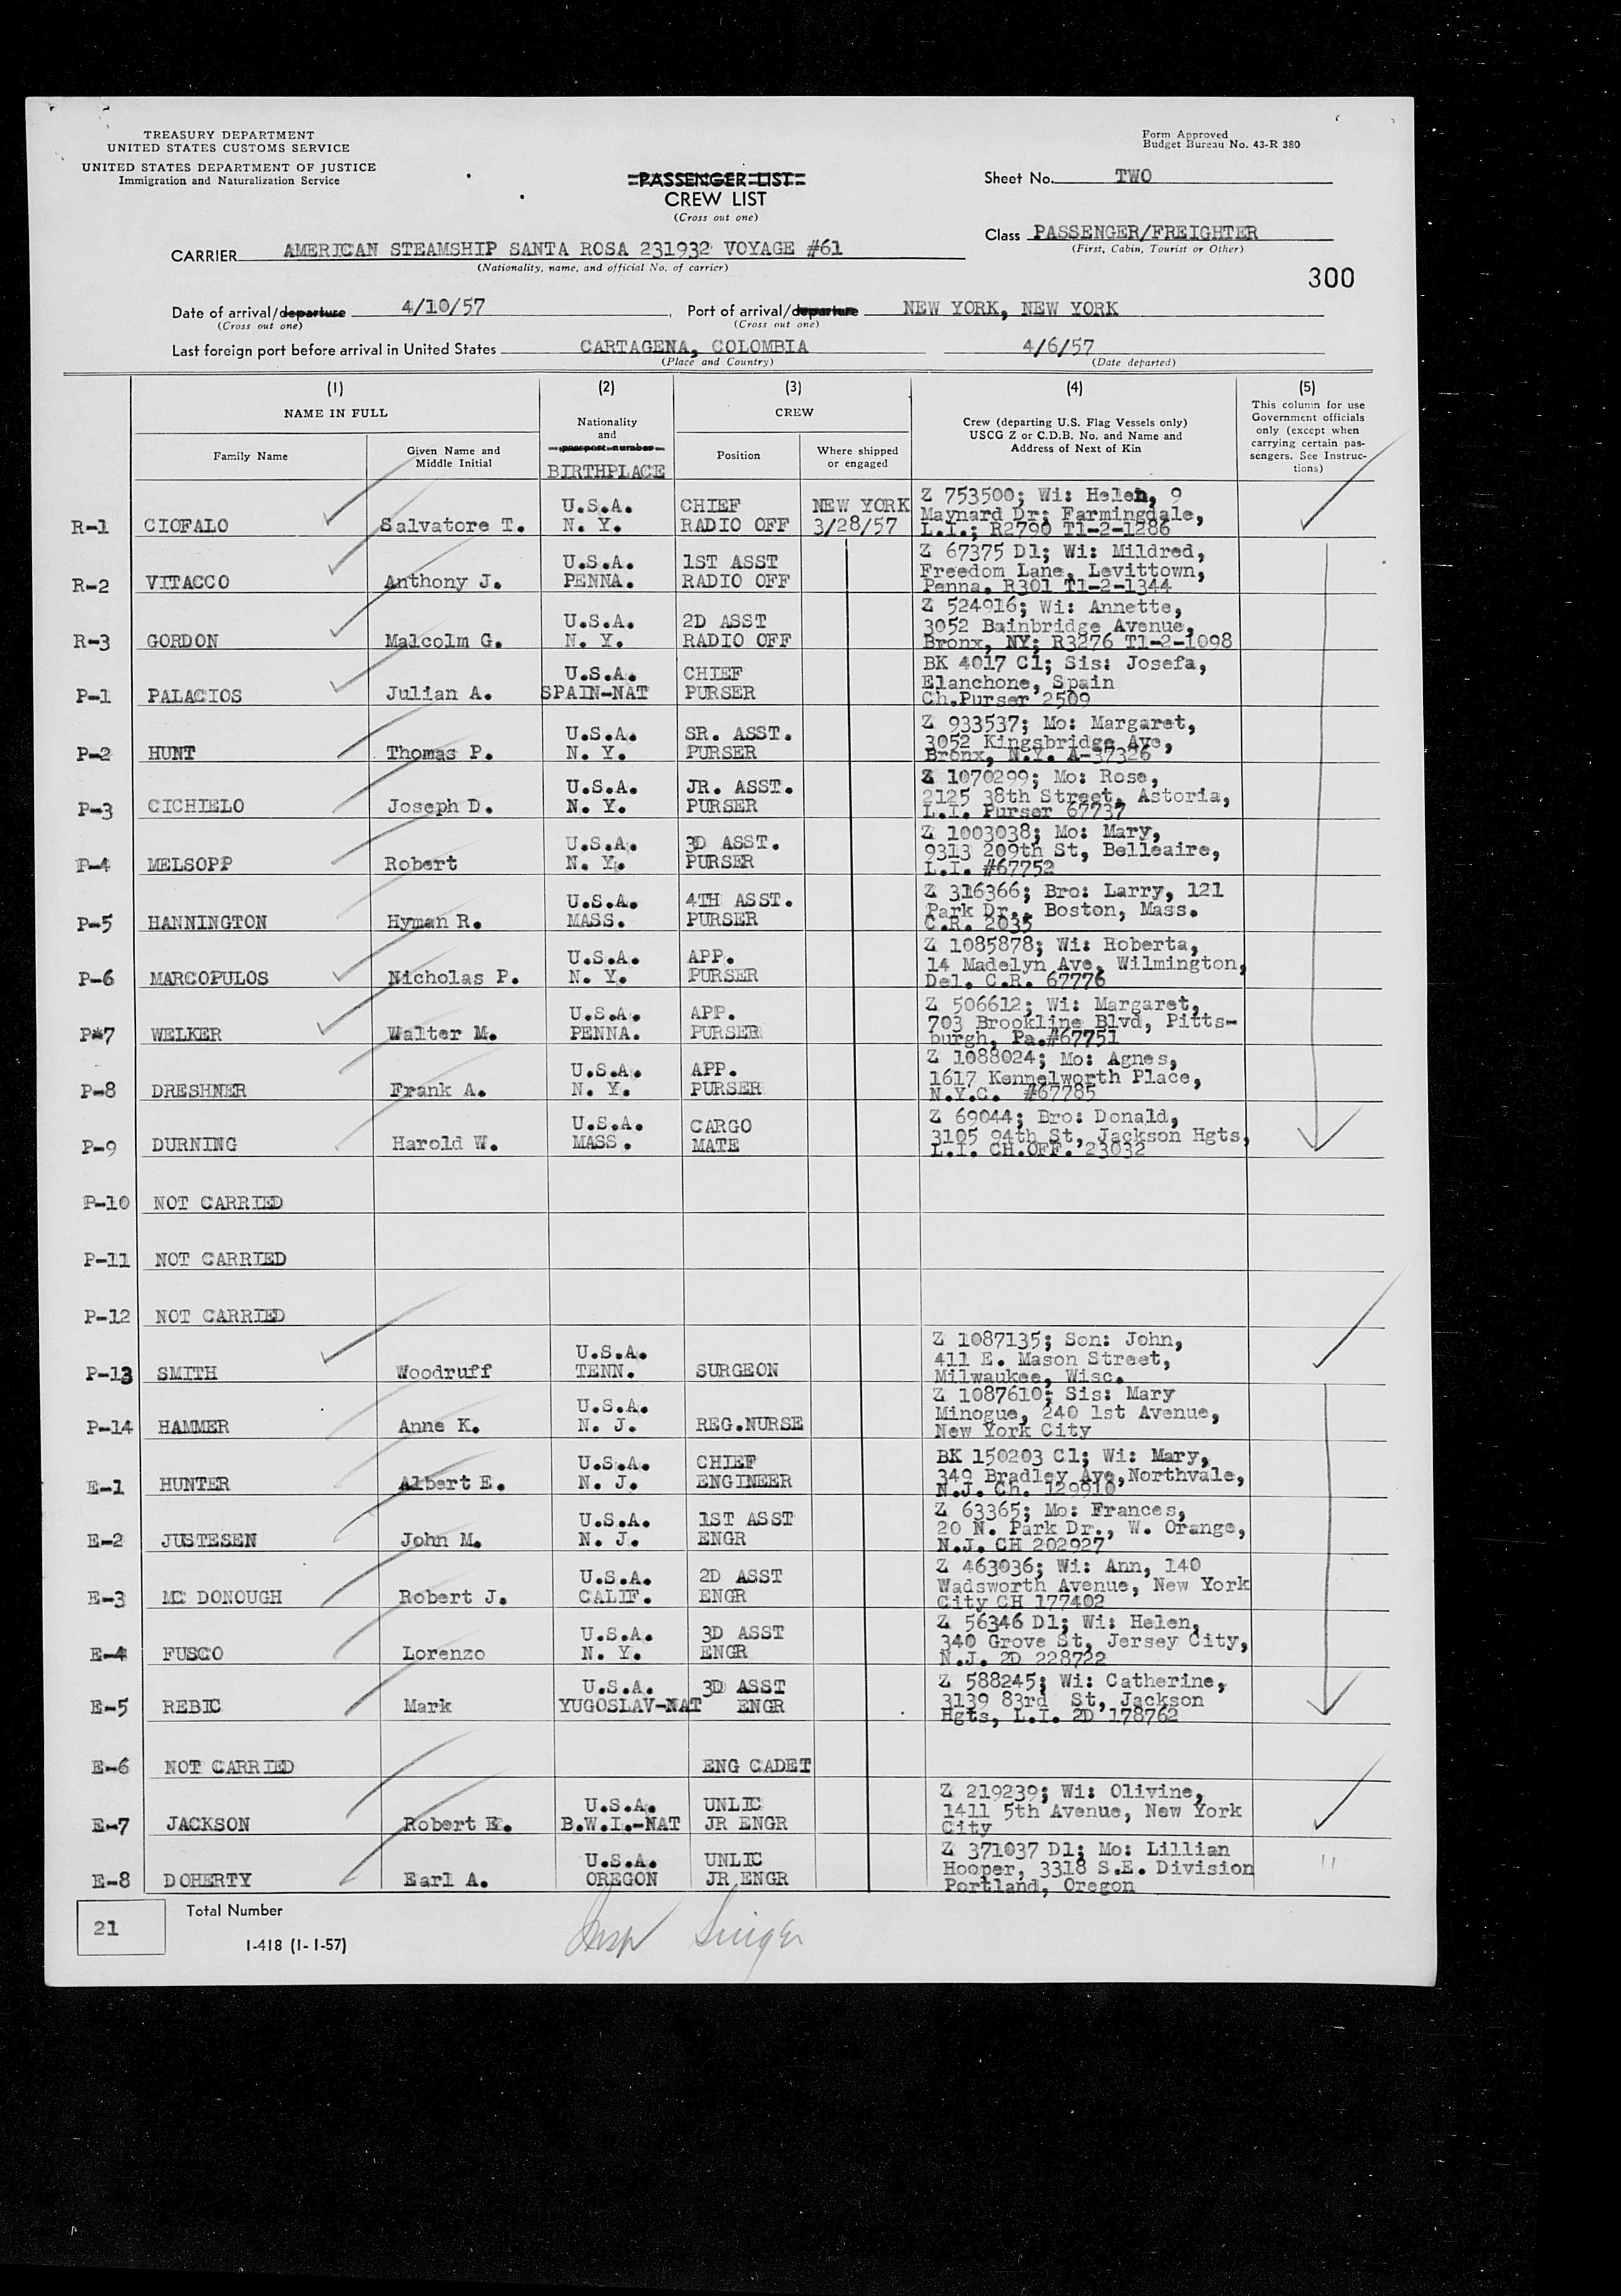 TREASURY DEPARTMENT
UNITED STATES CUSTOMS SERVICE
UNITED STATES DEPARTMENT OF JUSTICE
Immigration and Naturalization Service
Form Approved
Budget Bureau No. 43-R 380
PASSENGER LIST
CREW LIST
(Cross out one)
Sheet No. TWO
Class PASSENGER/FREIGHTER
(First, Cabin, Tourist or Other)
CARRIER AMERICAN STEAMSHIP SANTA ROSA 231932 VOYAGE #61
(Nationality, name, and official No. of carrier)
300
Date of arrival/departure 4/10/57 Port of arrival/departure NEW YORK, NEW YORK
(Cross out one) (Cross out one)
Last foreign port before arrival in United States CARTAGENA, COLOMBIA 4/6/57
(Place and Country) (Date departed)
(1) (2) (3) (4) (5)
NAME IN FULL
Family Name
Given Name and
Middle Initial
Nationality
and
passport number
BIRTHPLACE
CREW
Position
Where shipped
or engaged
Crew (departing U.S. Flag Vessels only)
USCG Z or C.D.B. No. and Name and
Address of Next of Kin
This column for use
Government officials
only (except when
carrying certain pas-
sengers. See Instruc-
tions)
U.S.A. CHIEF NEW YORK Z 753500; Wi: Helen, 9
R-1 CIOFALO Salvatore T. N. Y. RADIO OFF 3/28/57 Maynard Dr; Farmingdale,
L.I.; R2790 T1-2-1286
U.S.A. 1ST ASST Z 67375 D1; Wi: Mildred,
R-2 VITACCO Anthony J. PENNA. RADIO OFF Freedom Lane, Levittown,
Penna. R301 T1-2-1344
U.S.A. 2D ASST Z 524916; Wi: Annette,
R-3 GORDON Malcolm G. N. Y. RADIO OFF 3052 Bainbridge Avenue,
Bronx, NY; R3276 T1-2-1098
U.S.A. CHIEF BK 4017 C1; Sis: Josefa,
P-1 PALACIOS Julian A. SPAIN-NAT PURSER Elanchone, Spain
Ch.Purser 2509
U.S.A. SR. ASST. Z 933537; Mo: Margaret,
P-2 HUNT Thomas P. N. Y. PURSER 3052 Kingsbridge Ave,
Bronx, N.Y. A-37326
U.S.A. JR. ASST. Z 1070299; Mo: Rose,
P-3 CICHIELO Joseph D. N. Y. PURSER 2125 38th Street, Astoria,
L.I. Purser 67737
U.S.A. 3D ASST. Z 1003038; Mo: Mary,
P-4 MELSOPP Robert N. Y. PURSER 9313 209th St, Belleaire,
L.I. #67752
U.S.A. 4TH ASST. Z 316366; Bro: Larry, 121
P-5 HANNINGTON Hyman R. MASS. PURSER Park Dr., Boston, Mass.
C.R. 2035
U.S.A. APP. Z 1085878; Wi: Roberta,
P-6 MARCOPULOS Nicholas P. N. Y. PURSER 14 Madelyn Ave, Wilmington,
Del. C.R. 67776
U.S.A. APP. Z 506612; Wi: Margaret,
P*7 WELKER Walter M. PENNA. PURSER 703 Brookline Blvd, Pitts-
burgh, Pa.#67751
U.S.A. APP. Z 1088024; Mo: Agnes,
P-8 DRESHNER Frank A. N. Y. PURSER 1617 Kennelworth Place,
N.Y.C. #67785
U.S.A. CARGO Z 69044; Bro: Donald,
P-9 DURNING Harold W. MASS. MATE 3105 94th St, Jackson Hgts,
L.I. CH.OFF. 23032
P-10 NOT CARRIED
P-11 NOT CARRIED
P-12 NOT CARRIED
U.S.A. Z 1087135; Son: John,
P-13 SMITH Woodruff TENN. SURGEON 411 E. Mason Street,
Milwaukee, Wisc.
U.S.A. Z 1087610; Sis: Mary
P-14 HAMMER Anne K. N. J. REG.NURSE Minogue, 240 1st Avenue,
New York City
U.S.A. CHIEF BK 150203 C1; Wi: Mary,
E-1 HUNTER Albert E. N. J. ENGINEER 349 Bradley Ave,Northvale,
N.J. Ch. 129910
U.S.A. 1ST ASST Z 63365; Mo: Frances,
E-2 JUSTESEN John M. N. J. ENGR 20 N. Park Dr., W. Orange,
N.J. CH 202927
U.S.A. 2D ASST Z 463036; Wi: Ann, 140
E-3 MC DONOUGH Robert J. CALIF. ENGR Wadsworth Avenue, New York
City CH 177402
U.S.A. 3D ASST Z 56346 D1; Wi: Helen,
E-4 FUSCO Lorenzo N. Y. ENGR 340 Grove St, Jersey City,
N.J. 2D 228722
U.S.A. 3D ASST Z 588245; Wi: Catherine,
E-5 REBIC Mark YUGOSLAV-NAT ENGR 3139 83rd St, Jackson
Hgts, L.I. 2D 178762
E-6 NOT CARRIED ENG CADET
U.S.A. UNLIC Z 219239; Wi: Olivine,
E-7 JACKSON Robert E. B.W.I.-NAT JR ENGR 1411 5th Avenue, New York
City
U.S.A. UNLIC Z 371037 D1; Mo: Lillian
E-8 DOHERTY Earl A. OREGON JR ENGR Hooper, 3318 S.E. Division "
Portland, Oregon
21 Total Number
I-418 (1-1-57)
Insp Singer